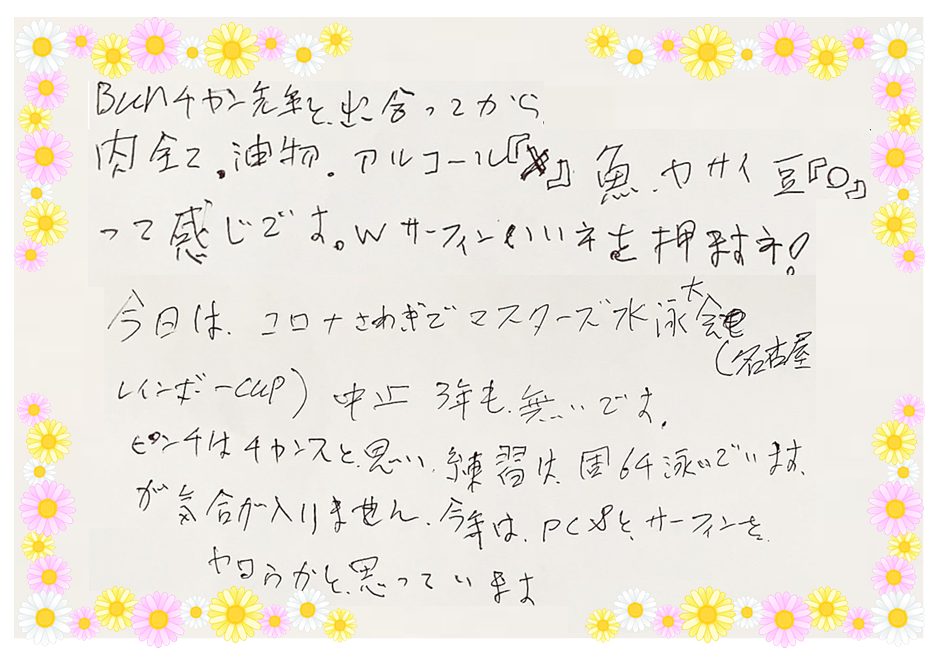 Bunチャン先生と出合ってから
肉全て。油物．アルコール『✗』魚．ヤサイ 豆『○』
って感じです。Wサーフィンいいネを押ますネ!
今日は．コロナさわぎでマスターズ水泳大会
(名古屋
レインボーCUP) 中止 3年も．無いです．
ピンチはチャンスと．思い．練習は 週64泳いでいます．
が気合が入りません．今年は．PCと．サーフィンを．
ヤロウかと．思っています